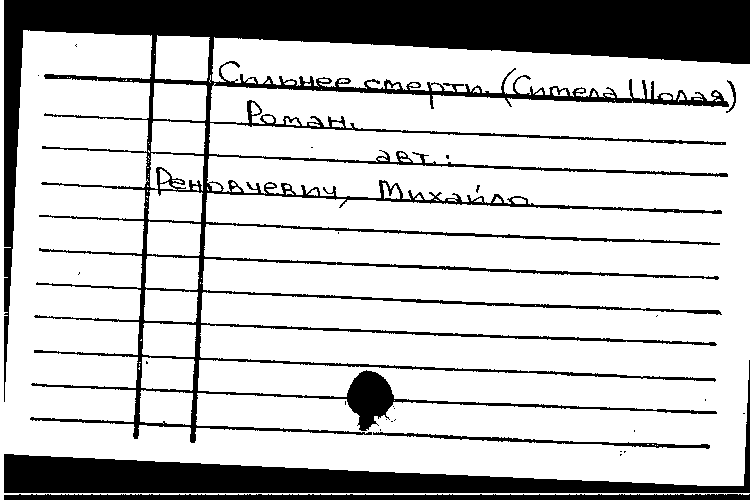 Сильнее смерти. (Симела Шолая)
Роман.
авт.:
Реновчевич, Михайло